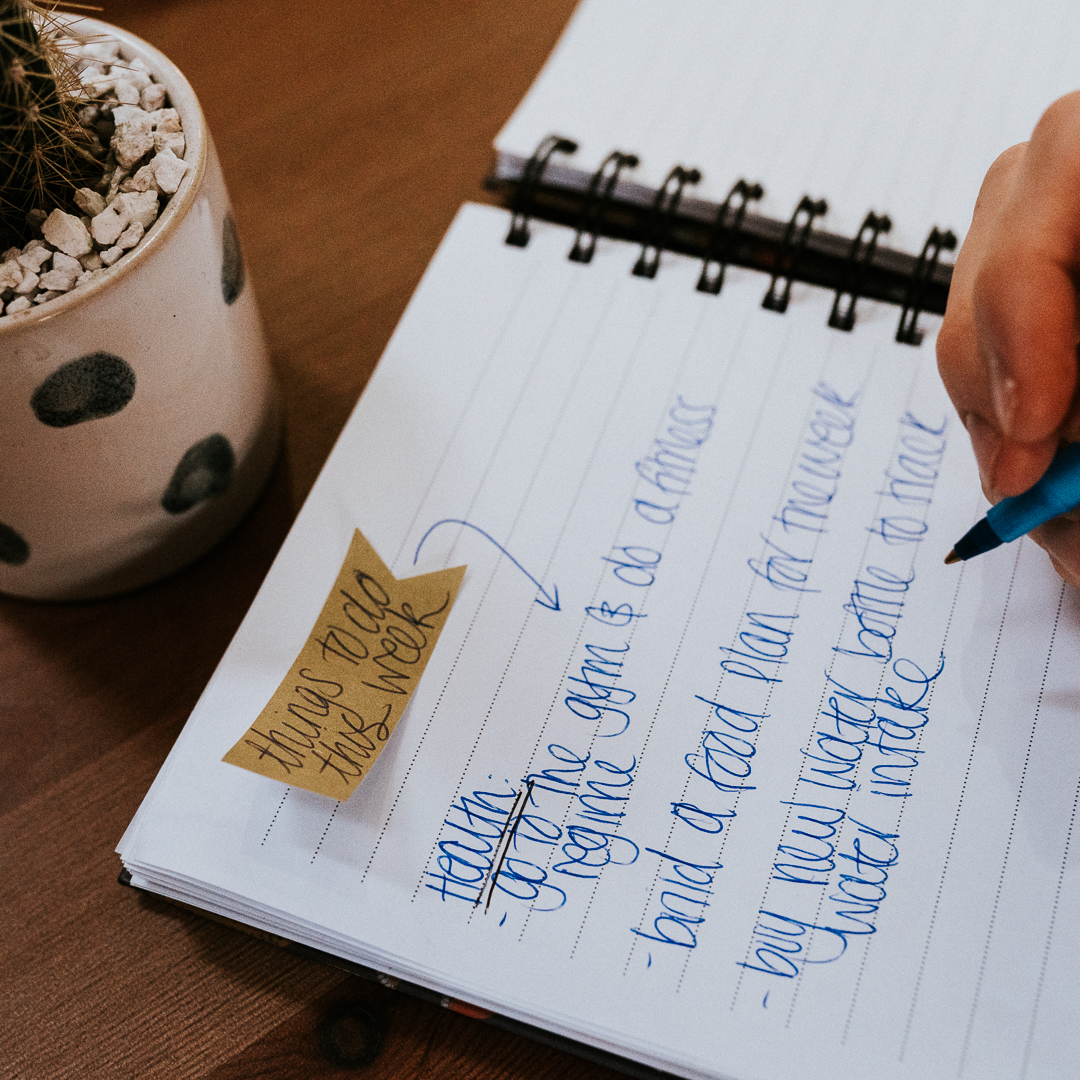 things to do
this week
Health:
- go to the gym & do a fitness
regime
- build a food plan for the week
- buy new water bottle to track
water intake